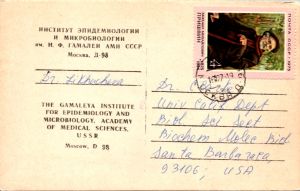 ИНСТИТУТ ЭПИДЕМИОЛОГИИ
И МИКРОБИОЛОГИИ
им. Н. Ф. ГАМАЛЕИ АМН СССР
Москва, Д-98
THE GAMALEYA INSTITUTE
FOR EPIDEMIOLOGY AND
MICROBIOLOGY, ACADEMY
OF MEDICAL SCIENCES,
USSR
Moscow, D 98
ПОЧТА СССР
Dr.
Univ Calif Dept
Biol Sci Sect
Biochem Molec Biol
Santa Barbara
93106, USA